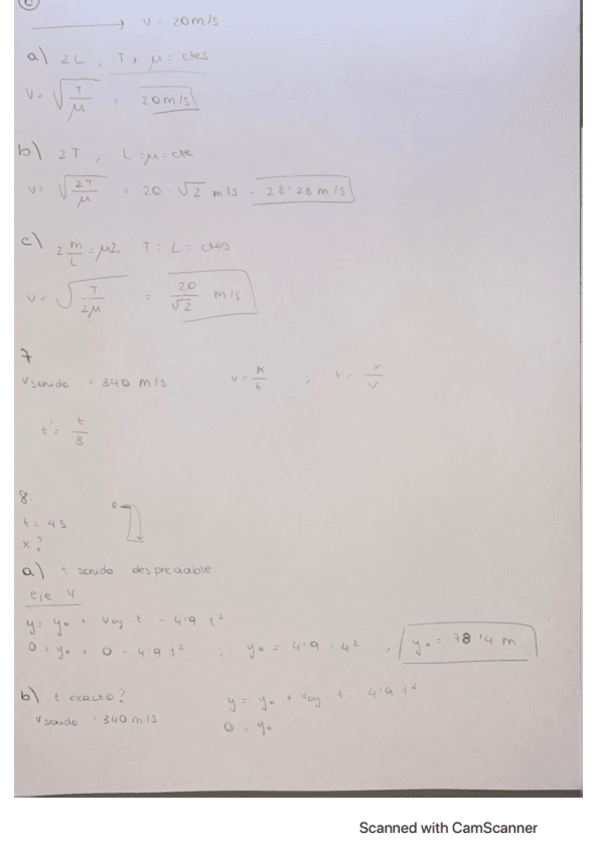 6
→ v = 20 m/s
a) 2L, T, μ = ctes
v = √(T/μ) = 20 m/s
b) 2T, L = μ = cte
v = √(2T/μ) = 20 · √2 m/s = 28'28 m/s
c) 2 m/L = μ2 T = L = ctes
v = √(T/2μ) = 20/√2 m/s
7
v sonido = 340 m/s v = x/t ; t = x/v
t' = t/3
8.
t = 4s 0
x?
a) t sonido despreciable.
eje y
y = y₀ + v₀y t - 4'9 t²
0 = y₀ + 0 - 4'9 t² ; y₀ = 4'9 · 4² , y₀ = 78'4 m
b) t exacto? y = y₀ + v₀y t - 4'9 t²
v sonido = 340 m/s 0 = y₀
Scanned with CamScanner